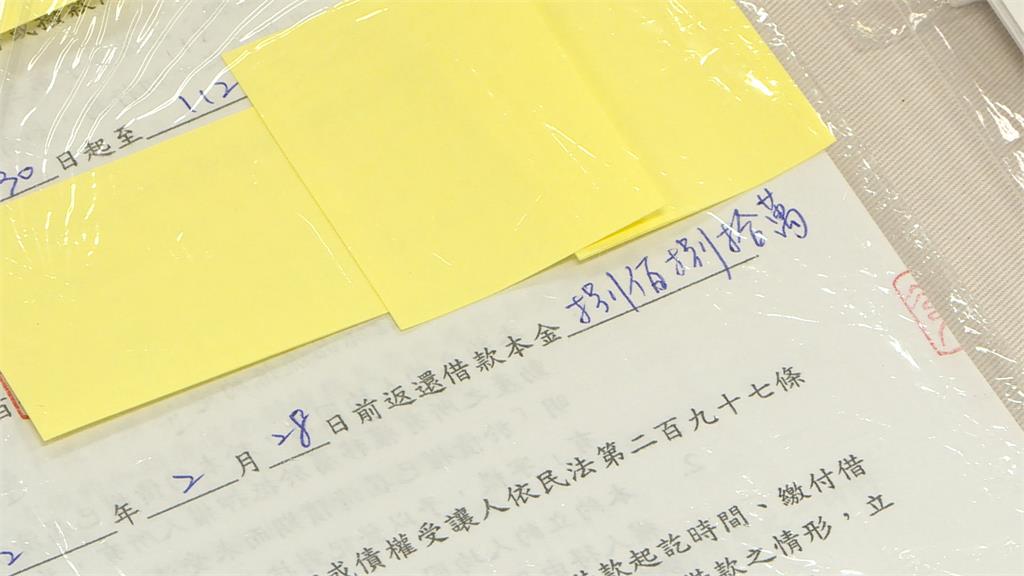 30日起至112
年2月28日前返還借款本金捌佰捌拾萬
或債權受讓人依民法第二百九十七條
款起訖時間、繳付借
款之情形，立